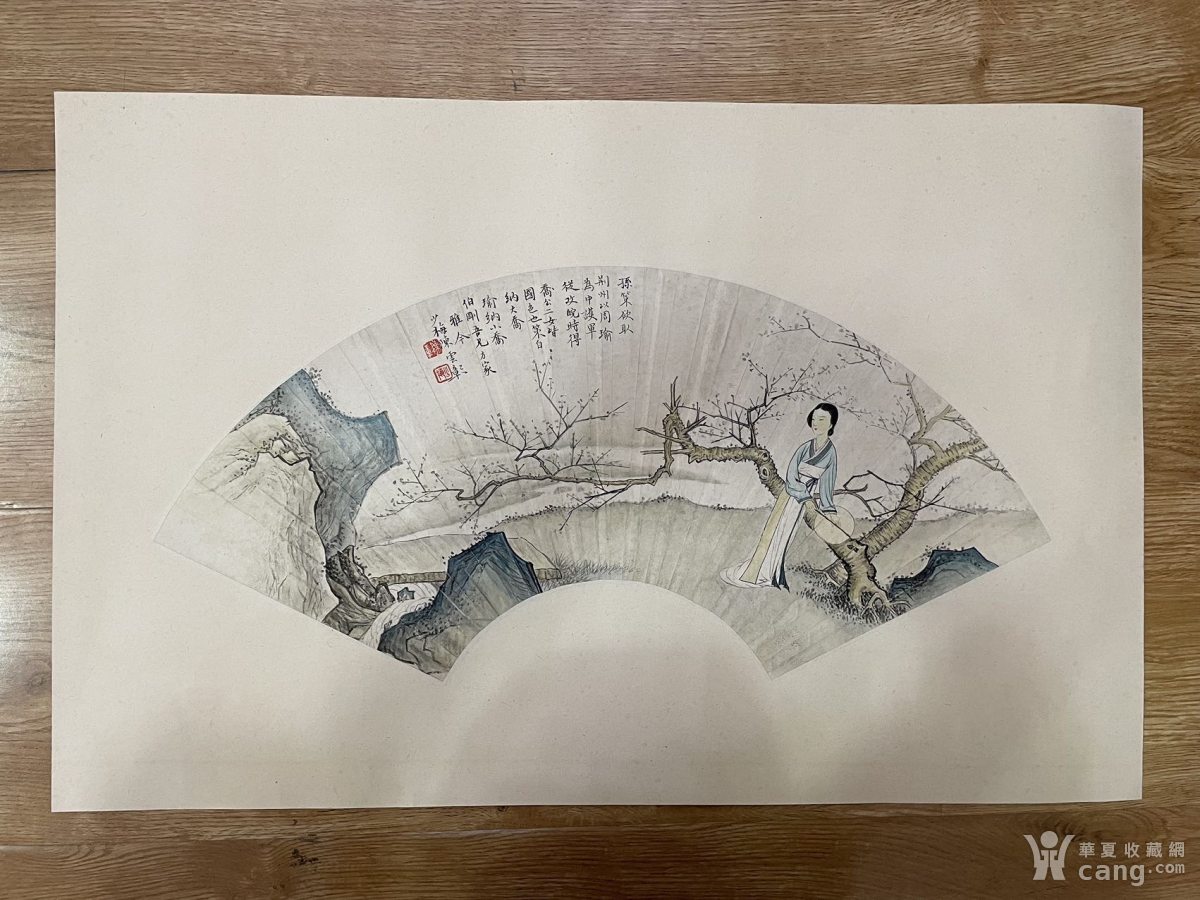 孫策欲取
荆州以周瑜
為中護軍
從攻皖時得
喬公二女皆
國色也策自
納大喬
瑜納小喬
伯剛吾兄方家
雅令
少梅陳雲彰
華夏收藏網
cang.com